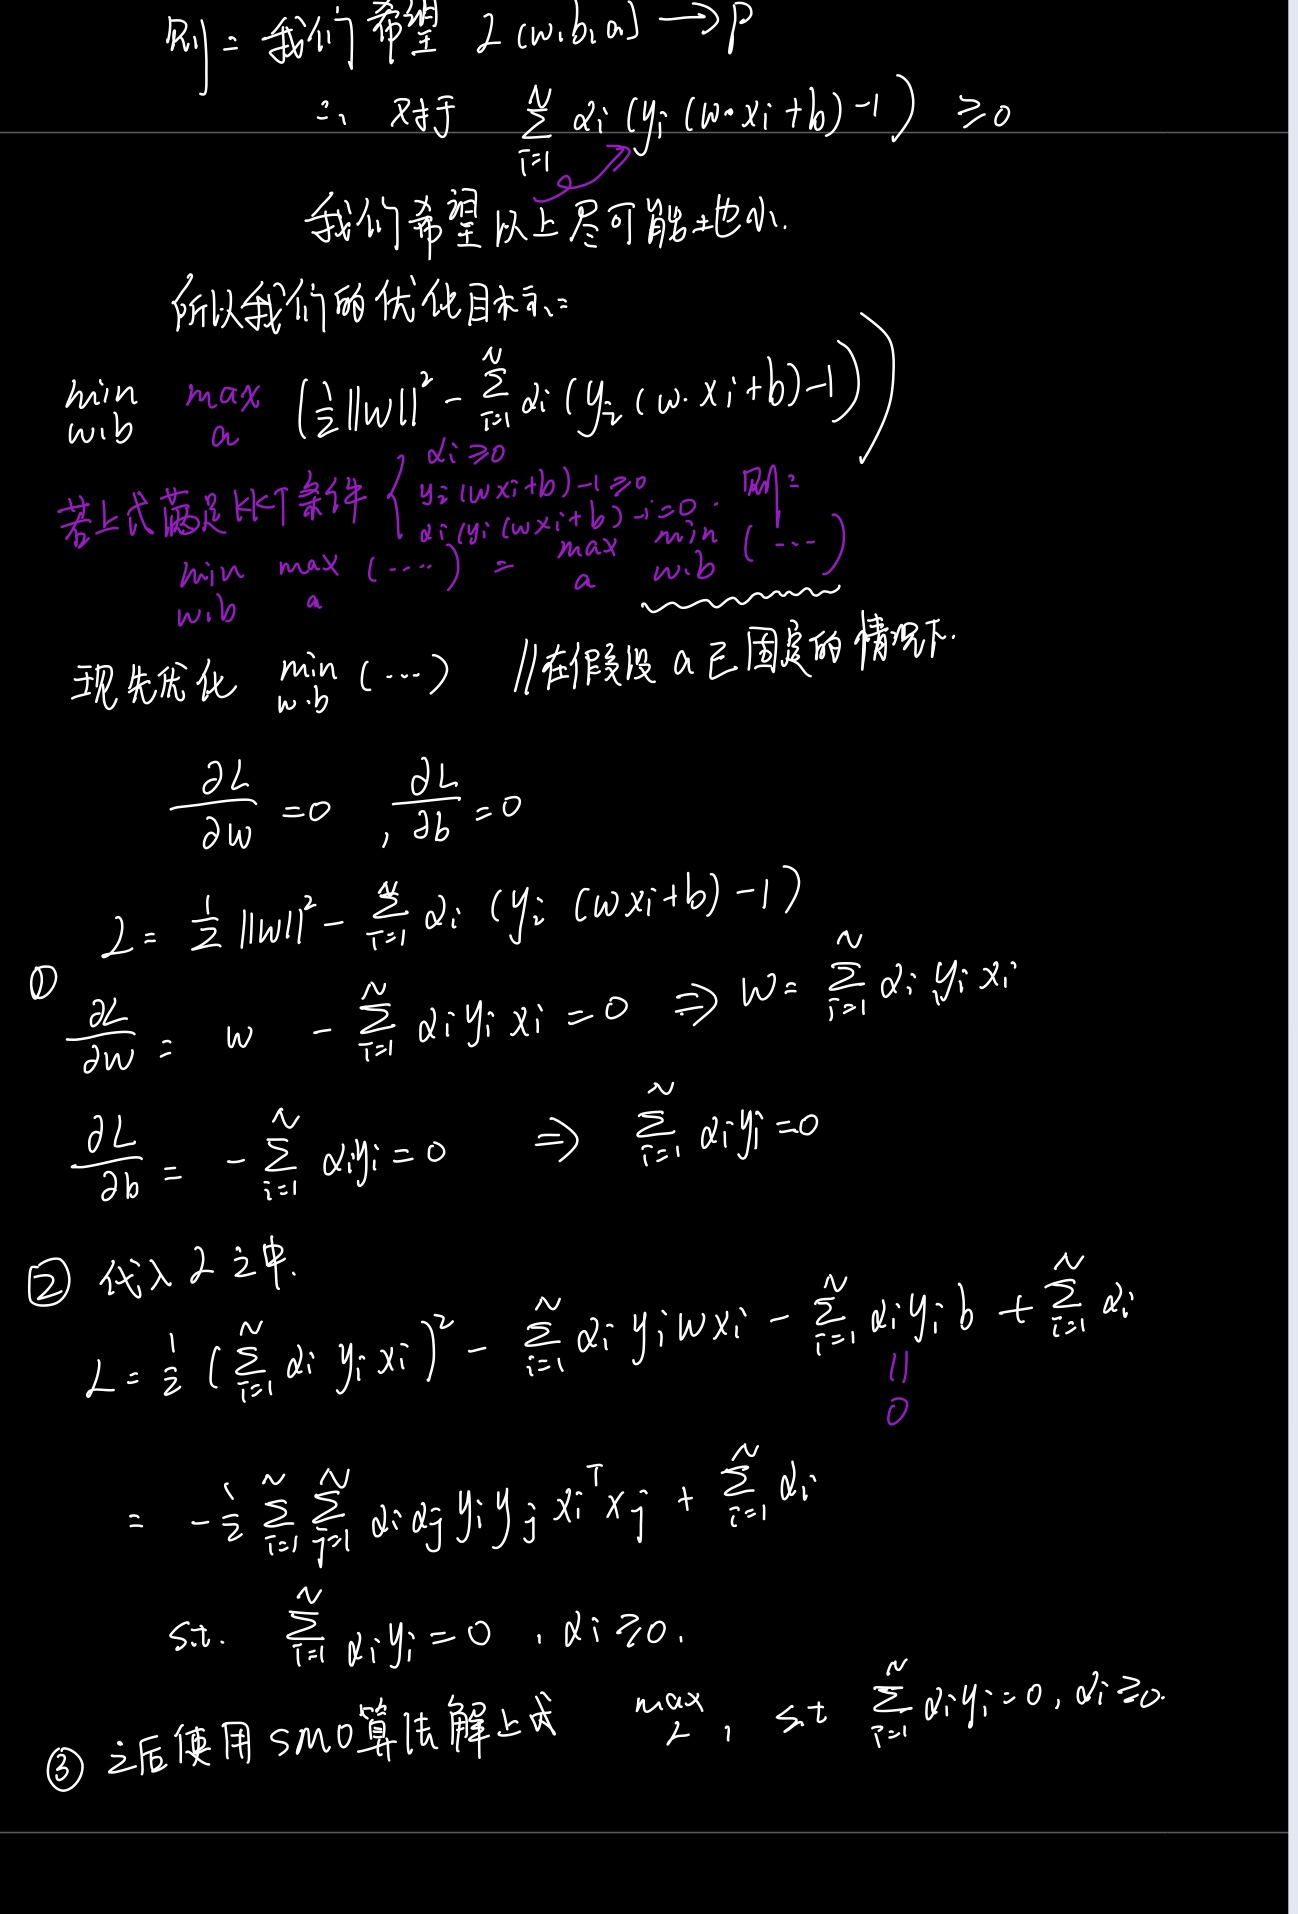 则: 我们希望 L(w,b,a) → p
∴ 对于 ∑_{i=1}^{N} αi (yi (w·xi+b)-1) ≥0
我们希望以上尽可能地小.
所以我们的优化目标:
min_{w,b} max_{a} (½||w||² - ∑_{i=1}^{N} αi (yi (w·xi+b)-1))
若上式满足KKT条件 { αi ≥0
yi (wxi+b)-1 ≥0
αi (yi (wxi+b)-1=0. 则:
min_{w,b} max_{a} (....) = max_{a} min_{w,b} (...)
现先优化 min_{w,b} (...) //在假设 a 已固定的情况下.
∂L/∂w =0 , ∂L/∂b =0
L= ½ ||w||² - ∑_{i=1}^{N} αi (yi (wxi+b)-1)
① ∂L/∂w = w - ∑_{i=1}^{N} αi yi xi =0 ⇒ w= ∑_{i=1}^{N} αi yi xi
∂L/∂b = - ∑_{i=1}^{N} αiyi=0 ⇒ ∑_{i=1}^{N} αiyi=0
② 代入 L 之中.
L= ½ (∑_{i=1}^{N} αi yi xi)² - ∑_{i=1}^{N} αi yi wxi - ∑_{i=1}^{N} αi yi b + ∑_{i=1}^{N} αi
||
0
= -½ ∑_{i=1}^{N} ∑_{j=1}^{N} αi αj yi yj xi^T xj + ∑_{i=1}^{N} αi
s.t. ∑_{i=1}^{N} αiyi=0 , αi ≥0,
③ 之后使用SMO算法解上式 max L, s.t ∑_{i=1}^{N} αiyi=0, αi≥0.